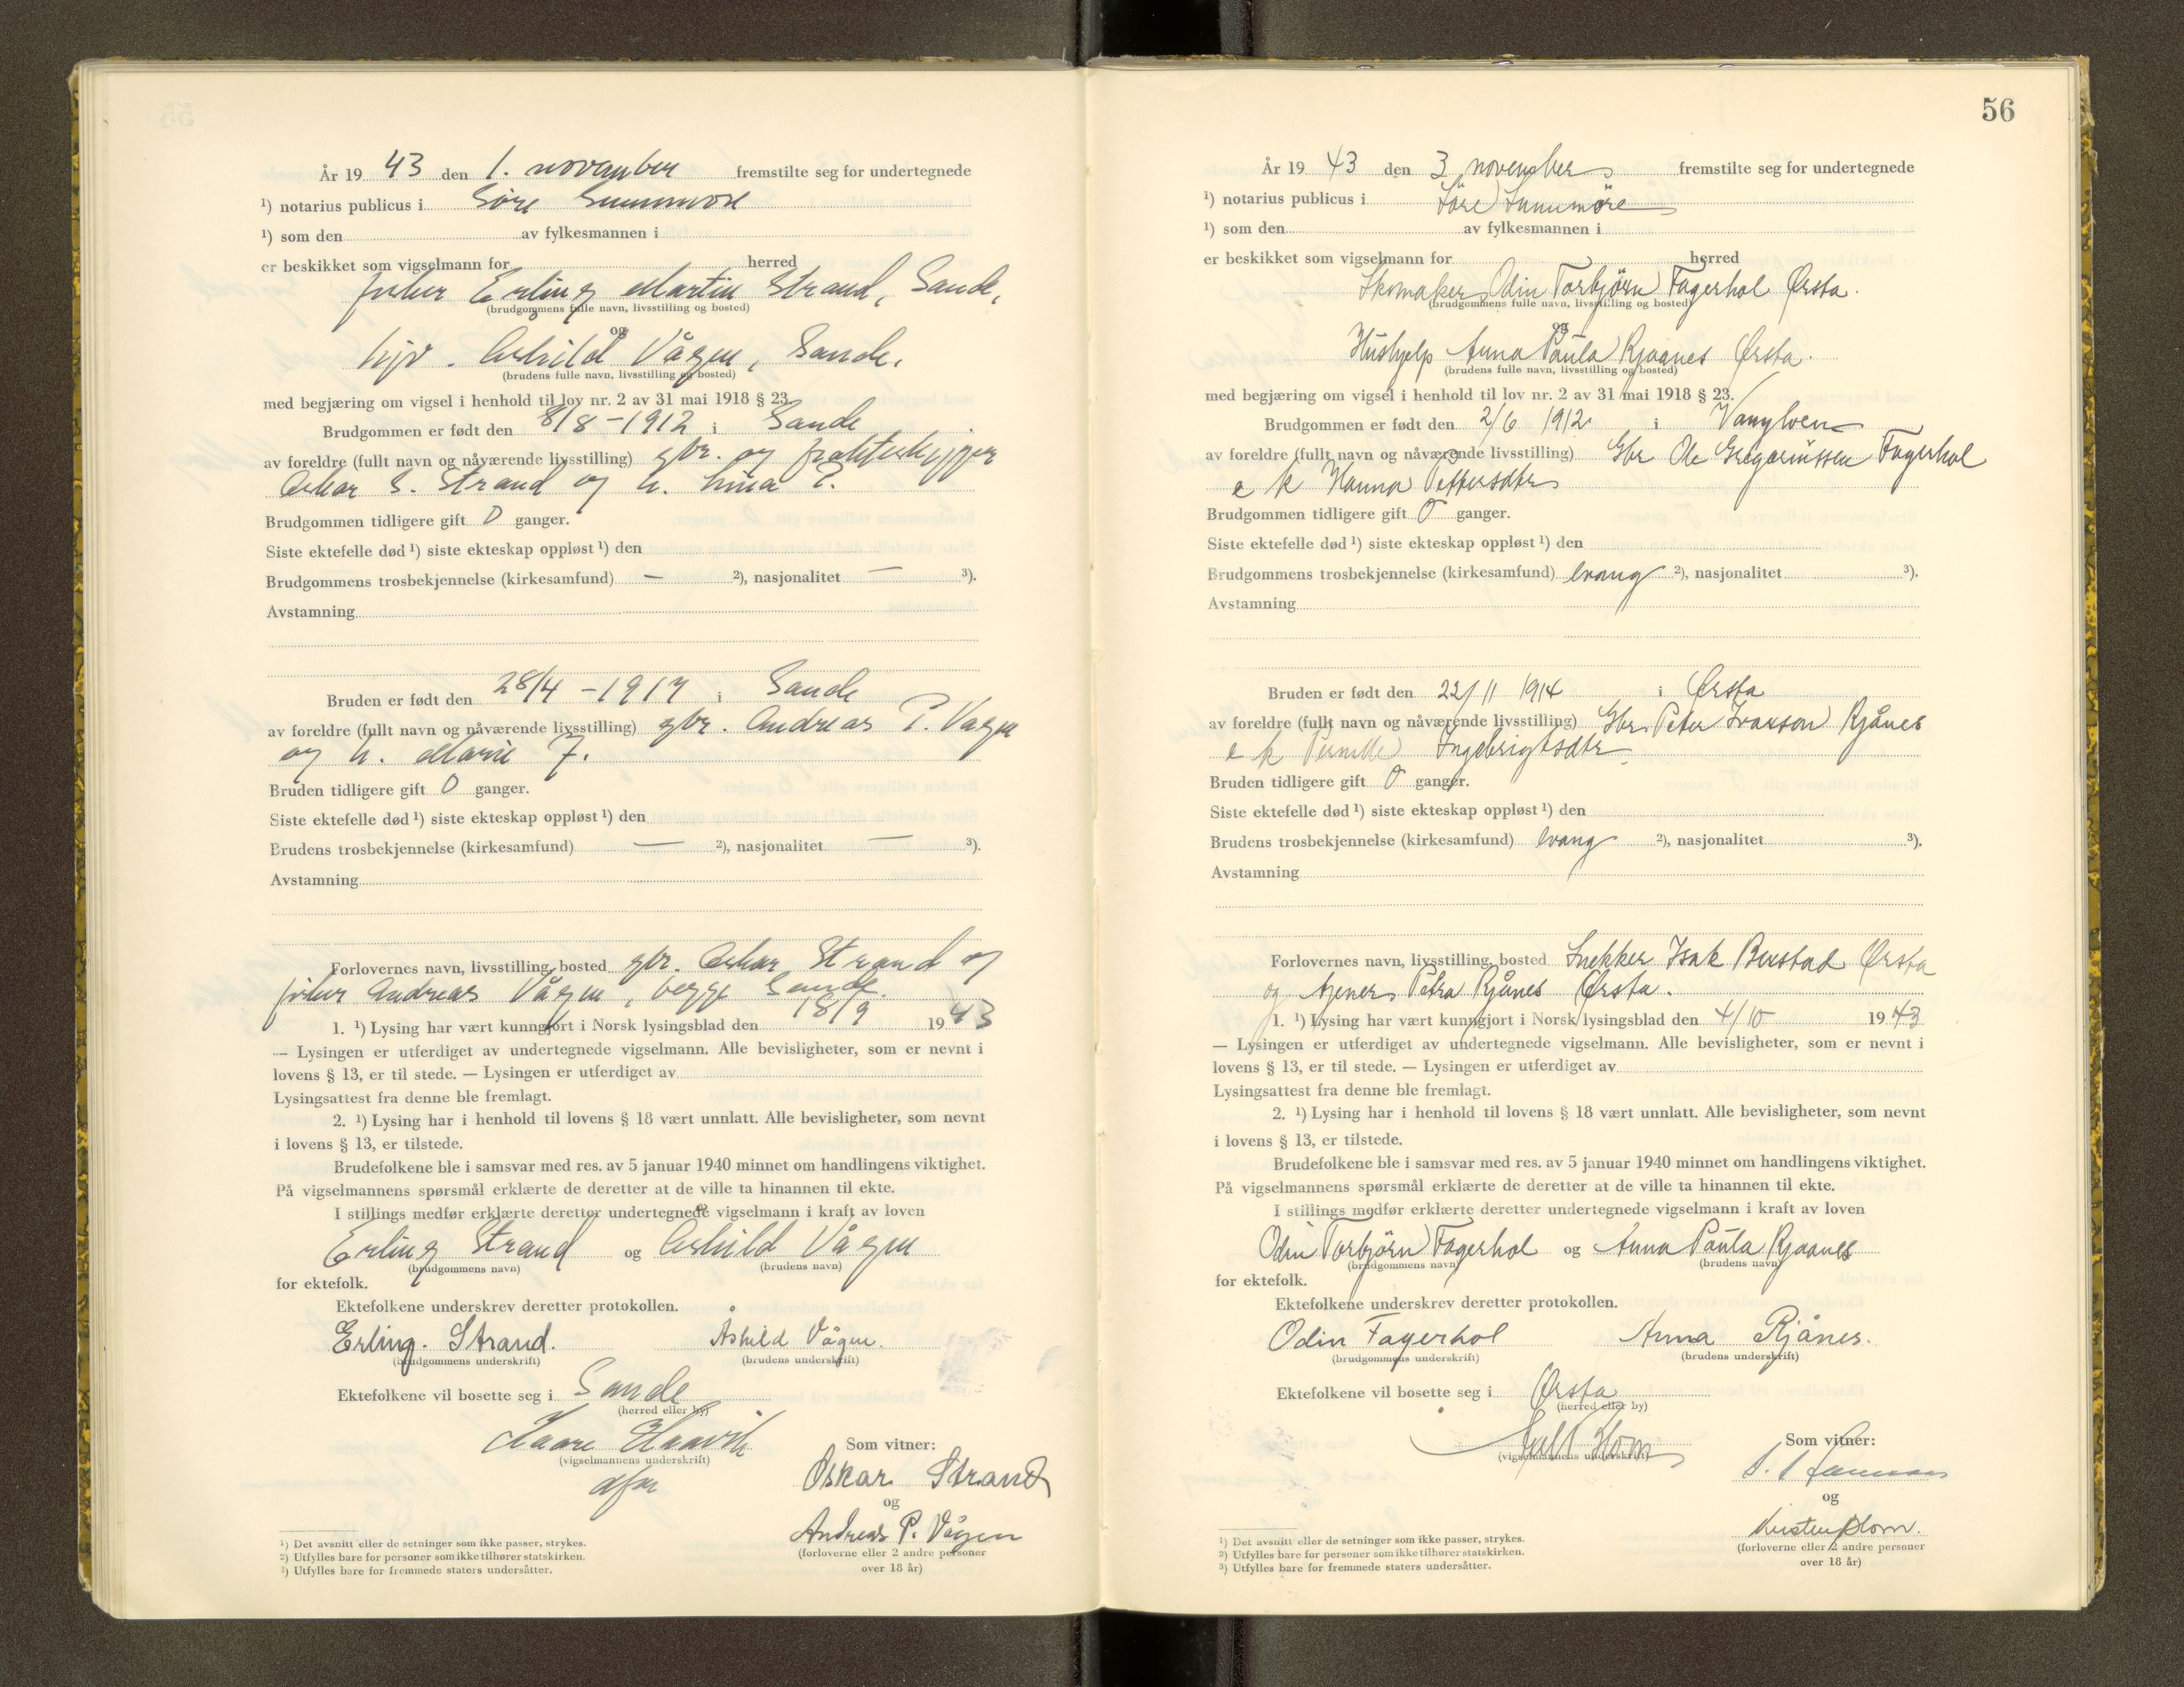 År 19 43 den 1. november fremstilte seg for undertegnede
¹) notarius publicus i Söre Sunnmöre
¹) som den av fylkesmannen i
er beskikket som vigselmann for herred
fisker Erling Martin Strand, Sande,
(brudgommens fulle navn, livsstilling og bosted)
og
hjv. Åshild Vågen, Sande.
(brudens fulle navn, livsstilling og bosted)
med begjæring om vigsel i henhold til lov nr. 2 av 31 mai 1918 § 23.
Brudgommen er født den 8/8-1912 i Sande
av foreldre (fullt navn og nåværende livsstilling) gbr. og frakteskipper
Oskar S. Strand og h. Lina
Brudgommen tidligere gift 0 ganger.
Siste ektefelle død ¹) siste ekteskap oppløst ¹) den
Brudgommens trosbekjennelse (kirkesamfund) — ²), nasjonalitet — ³).
Avstamning
Bruden er født den 28/4-1917 i Sande
av foreldre (fullt navn og nåværende livsstilling) gbr. Andreas P. Vågen
og h. Marie J.
Bruden tidligere gift 0 ganger.
Siste ektefelle død ¹) siste ekteskap oppløst ¹) den
Brudens trosbekjennelse (kirkesamfund) — ²), nasjonalitet — ³).
Avstamning
Forlovernes navn, livsstilling, bosted gbr. Oskar Strand og
fisker Andreas Vågen, begge Sande.
1. ¹) Lysing har vært kunngjort i Norsk lysingsblad den 18/9 19 43
— Lysingen er utferdiget av undertegnede vigselmann. Alle bevisligheter, som er nevnt i
lovens § 13, er til stede. — Lysingen er utferdiget av
Lysingsattest fra denne ble fremlagt.
2. ¹) Lysing har i henhold til lovens § 18 vært unnlatt. Alle bevisligheter, som nevnt
i lovens § 13, er tilstede.
Brudefolkene ble i samsvar med res. av 5 januar 1940 minnet om handlingens viktighet.
På vigselmannens spørsmål erklærte de deretter at de ville ta hinannen til ekte.
I stillings medfør erklærte deretter undertegnede vigselmann i kraft av loven
Erling Strand og Åshild Vågen
(brudgommens navn) (brudens navn)
for ektefolk.
Ektefolkene underskrev deretter protokollen.
Erling. Strand. Åshild Vågen.
(brudgommens underskrift) (brudens underskrift)
Ektefolkene vil bosette seg i Sande
(herred eller by)
Kaare Haavik
(vigselmannens underskrift)
Som vitner:
Oskar Strand
og
Andreas P. Vågen
(forloverne eller 2 andre personer
over 18 år)
¹) Det avsnitt eller de setninger som ikke passer, strykes.
²) Utfylles bare for personer som ikke tilhører statskirken.
³) Utfylles bare for fremmede staters undersåtter.
56
År 19 43 den 3 november fremstilte seg for undertegnede
¹) notarius publicus i Söre Sunnmöre
¹) som den av fylkesmannen i
er beskikket som vigselmann for herred
Skomaker Odin Torbjörn Fagerhol Ørsta.
(brudgommens fulle navn, livsstilling og bosted)
og
Hushjelp Anna Paula Rjaanes Ørsta.
(brudens fulle navn, livsstilling og bosted)
med begjæring om vigsel i henhold til lov nr. 2 av 31 mai 1918 § 23.
Brudgommen er født den 2/6 1912 i Vanylven
av foreldre (fullt navn og nåværende livsstilling) Gbr Ole Gregoriussen Fagerhol
e k Hanna Pettersdtr
Brudgommen tidligere gift 0 ganger.
Siste ektefelle død ¹) siste ekteskap oppløst ¹) den
Brudgommens trosbekjennelse (kirkesamfund) evang ²), nasjonalitet ³).
Avstamning
Bruden er født den 22/11 1914 i Ørsta
av foreldre (fullt navn og nåværende livsstilling) Gbr. Peter Ivarson Rjånes
e k Pernille Ingebrigtsdtr
Bruden tidligere gift 0 ganger.
Siste ektefelle død ¹) siste ekteskap oppløst ¹) den
Brudens trosbekjennelse (kirkesamfund) evang ²), nasjonalitet ³).
Avstamning
Forlovernes navn, livsstilling, bosted Snekker Isak Bustad Ørsta
og Petra Rjånes Ørsta.
1. ¹) Lysing har vært kunngjort i Norsk lysingsblad den 4/10 19 43
— Lysingen er utferdiget av undertegnede vigselmann. Alle bevisligheter, som er nevnt i
lovens § 13, er til stede. — Lysingen er utferdiget av
Lysingsattest fra denne ble fremlagt.
2. ¹) Lysing har i henhold til lovens § 18 vært unnlatt. Alle bevisligheter, som nevnt
i lovens § 13, er tilstede.
Brudefolkene ble i samsvar med res. av 5 januar 1940 minnet om handlingens viktighet.
På vigselmannens spørsmål erklærte de deretter at de ville ta hinannen til ekte.
I stillings medfør erklærte deretter undertegnede vigselmann i kraft av loven
Odin Torbjörn Fagerhol og Anna Paula Rjaanes
(brudgommens navn) (brudens navn)
for ektefolk.
Ektefolkene underskrev deretter protokollen.
Odin Fagerhol Anna Rjånes.
(brudgommens underskrift) (brudens underskrift)
Ektefolkene vil bosette seg i Ørsta
(herred eller by)
(vigselmannens underskrift)
Som vitner:
og
Kirsten
(forloverne eller 2 andre personer
over 18 år)
¹) Det avsnitt eller de setninger som ikke passer, strykes.
²) Utfylles bare for personer som ikke tilhører statskirken.
³) Utfylles bare for fremmede staters undersåtter.